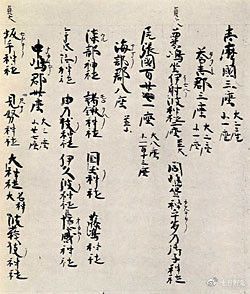 志摩國三座 大二座 小一座
荅志郡三座 大二座 小一座
粟嶋坐伊射波神社二座 並大 同嶋坐神乎多乃御子神社
尾張國百廿一座 大八座 小百十三座
海部郡八座 並小
漆部神社 諸钁神社 國玉神社 藤嶋神社
由乃伎神社 伊久波神社 憶感神社
中嶋郡卅座 大三座 小廿七座
坂手神社 見努神社 大神社 名神大 神社